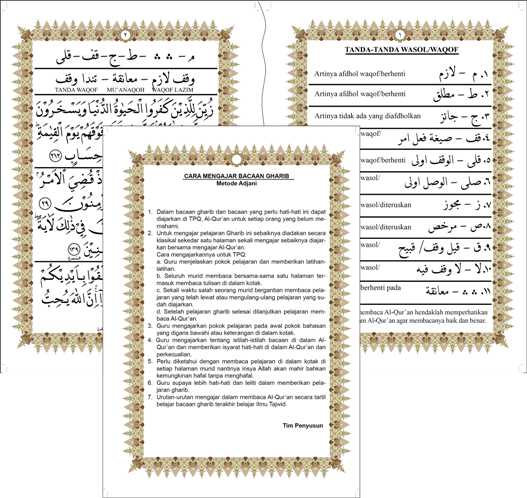 ٢
م – ∴ ∴ – ط – ج – قف – قلى
وقف لازم – معانقة – تندا وقف
TANDA WAQOF MU'ANAQOH WAQOF LAZIM
زُيِّنَ لِلَّذِيْنَ كَفَرُوا الْحَيٰوةُ الدُّنْيَا وَيَسْخَرُوْنَ
فَوْقَهُمْ يَوْمَ الْقِيٰمَةِ
حِسَابٍ ﴿٢١٢﴾
قُضِيَ الْاَمْرُ
﴿٣٩﴾
فِيْ ذٰلِكَ لَاٰيَةً
١
TANDA-TANDA WASOL/WAQOF
Artinya afdhol waqof/berhenti ١. م – لازم
Artinya afdhol waqof/berhenti ٢. ط – مطلق
Artinya tidak ada yang diafdholkan ٣. ج – جائز
waqof/ ٤. قف – صيغة فعل امر
waqof/berhenti ٥. قلى – الوقف اولى
wasol/ ٦. صلى – الوصل اولى
wasol/diteruskan ٧. ز – مجوز
wasol/diteruskan ٨. ص – مرخص
wasol/ ٩. ق – قيل وقف/ قبيح
wasol/ ١٠. لا – لا وقف فيه
berhenti pada ١١. ∴ ∴ – معانقة
membaca Al-Qur'an hendaklah memperhatikan
Al-Qur'an agar membacanya baik dan benar.
CARA MENGAJAR BACAAN GHARIB
Metode Adjani
1. Dalam bacaan gharib dan bacaan yang perlu hati-hati ini dapat
diajarkan di TPQ, Al-Qur'an untuk setiap orang yang belum me-
mahami.
2. Untuk mengajar pelajaran Gharib ini sebaiknya diadakan secara
klasikal sekedar satu halaman sekali mengajar sebaiknya diajar-
kan bersama mengajar Al-Qur'an.
Cara mengajarkannya untuk TPQ:
a. Guru menjelaskan pokok pelajaran dan memberikan latihan-
latihan.
b. Seluruh murid membaca bersama-sama satu halaman ter-
masuk membaca tulisan di dalam kotak.
c. Sekali waktu salah seorang murid bergantian membaca pela-
jaran yang telah lewat atau mengulang-ulang pelajaran yang su-
dah diajarkan.
d. Setelah pelajaran gharib selesai dilanjutkan pelajaran mem-
baca Al-Qur'an.
3. Guru mengajarkan pokok pelajaran pada awal pokok bahasan
yang digaris bawahi atau keterangan di dalam kotak.
4. Guru mengajarkan tentang istilah-istilah bacaan di dalam Al-
Qur'an dan memberikan isyarat hati-hati di dalam Al-Qur'an dan
perkecualian.
5. Perlu diketahui dengan membaca pelajaran di dalam kotak di
setiap halaman murid nantinya insya Allah akan mahir bahkan
kemungkinan hafal tanpa menghafal.
6. Guru supaya lebih hati-hati dan teliti dalam memberikan pela-
jaran gharib.
7. Urutan-urutan mengajar dalam membaca Al-Qur'an secara tartil
belajar bacaan gharib terakhir belajar Ilmu Tajwid.
Tim Penyusun